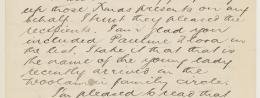 up those Xmas presents on my
behalf. I trust they pleased the
recipients. I am glad you
included Pauline Flora in
the list. I take it that that is
the name of the young lady
recently arrived in the
family circle.
I'm pleased to read that